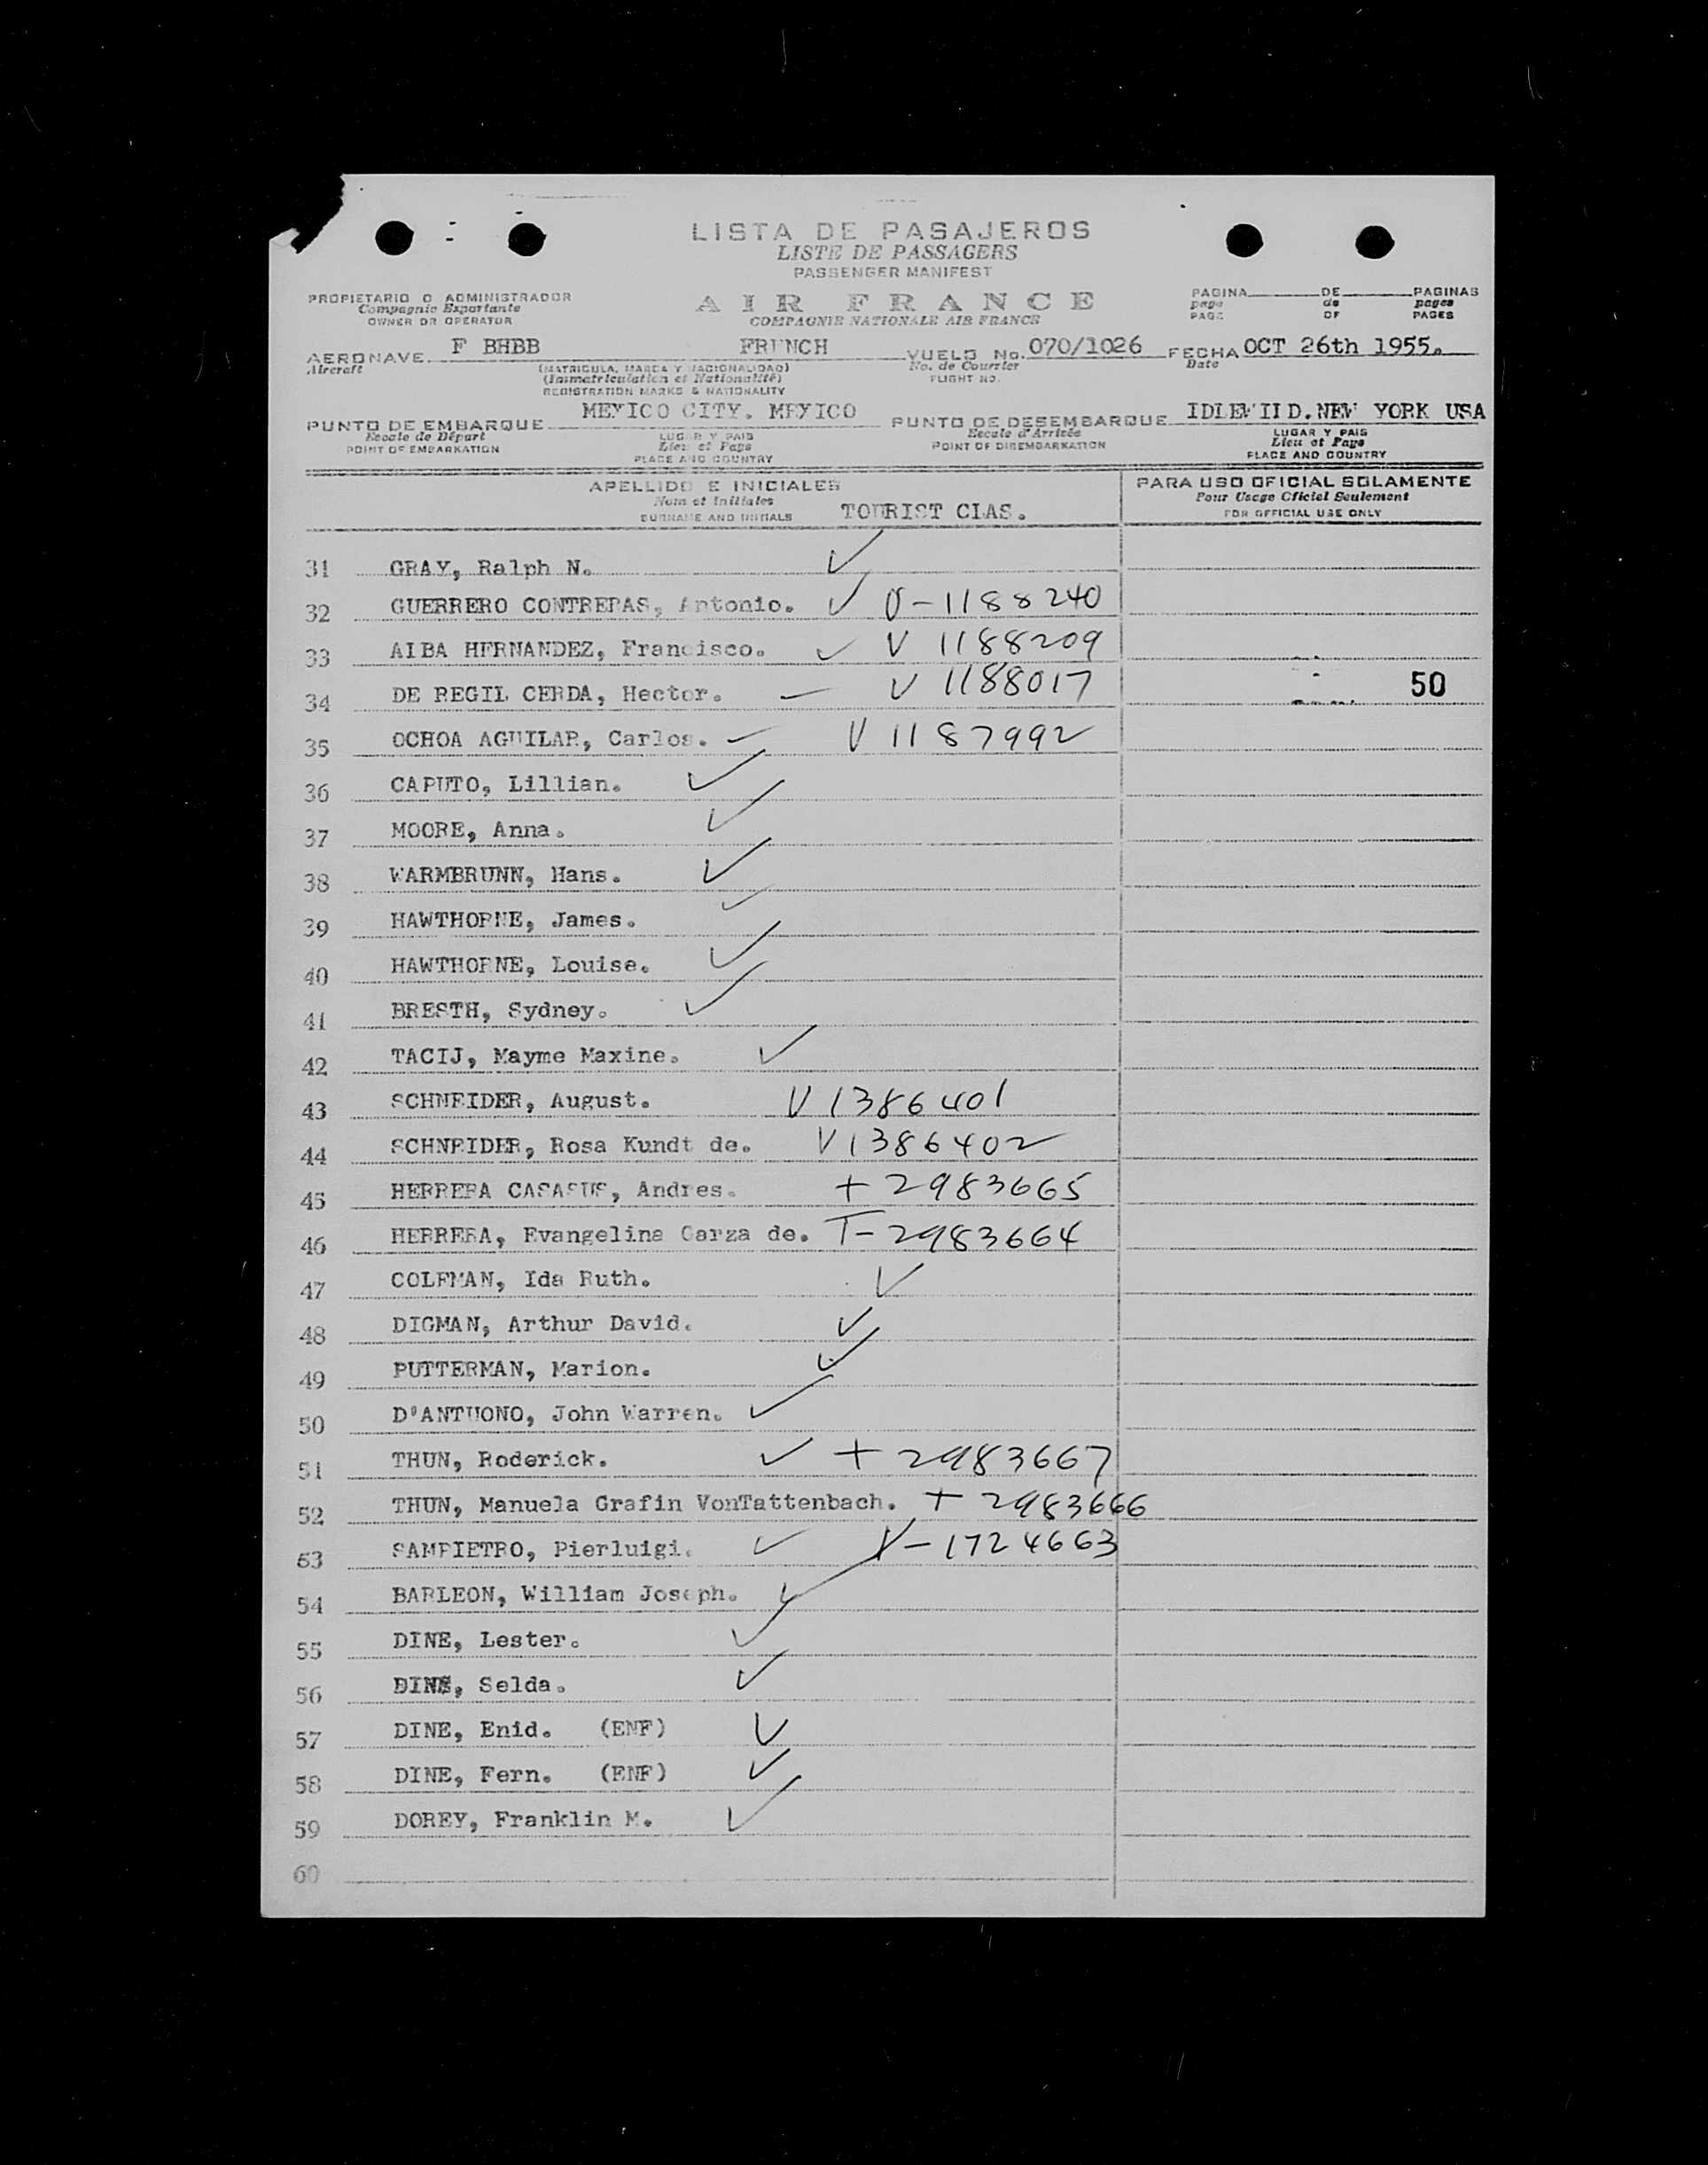 LISTA DE PASAJEROS
LISTE DE PASSAGERS
PASSENGER MANIFEST
PROPIETARIO O ADMINISTRADOR
Compagnie Exportante
OWNER OR OPERATOR
AIR FRANCE
COMPAGNIE NATIONALE AIR FRANCE
PAGINA DE PAGINAS
page de pages
PAGE OF PAGES
AERONAVE F BHBB FRENCH VUELO No. 070/1026 FECHA OCT 26th 1955.
Aircraft (MATRICULA, MARCA Y NACIONALIDAD) No. de Courrier Date
(Immatriculation et Nationalité) FLIGHT NO.
REGISTRATION MARKS & NATIONALITY
PUNTO DE EMBARQUE MEXICO CITY. MEXICO PUNTO DE DESEMBARQUE IDLEWILD.NEW YORK USA
Escale de Départ LUGAR Y PAIS Escale d'Arrivée LUGAR Y PAIS
POINT OF EMBARKATION Lieu et Pays POINT OF DISEMBARKATION Lieu et Pays
PLACE AND COUNTRY PLACE AND COUNTRY
APELLIDO E INICIALES PARA USO OFICIAL SOLAMENTE
Nom et Initiales Pour Usage Officiel Seulement
SURNAME AND INITIALS TOURIST CLAS. FOR OFFICIAL USE ONLY
31 GRAY, Ralph N. ✓
32 GUERRERO CONTRERAS, Antonio. ✓ V-1188240
33 ALBA HERNANDEZ, Francisco. ✓ V 1188209
34 DE REGIL CERDA, Hector. V 1188017 50
35 OCHOA AGUILAR, Carlos. V 1187992
36 CAPUTO, Lillian. ✓
37 MOORE, Anna. ✓
38 WARMBRUNN, Hans. ✓
39 HAWTHORNE, James. ✓
40 HAWTHORNE, Louise. ✓
41 BRESTH, Sydney. ✓
42 TACIJ, Mayme Maxine. ✓
43 SCHNEIDER, August. V 1386401
44 SCHNEIDER, Rosa Kundt de. V 1386402
45 HERRERA CASASUS, Andres. + 2983665
46 HERRERA, Evangelina Garza de. T-2983664
47 COLEMAN, Ida Ruth. ✓
48 DIGMAN, Arthur David. ✓
49 PUTTERMAN, Marion. ✓
50 D'ANTUONO, John Warren. ✓
51 THUN, Roderick. ✓ + 2983667
52 THUN, Manuela Grafin VonTattenbach. + 2983666
53 SAMPIETRO, Pierluigi. ✓ V-1724663
54 BARLEON, William Joseph. ✓
55 DINE, Lester. ✓
56 DINE, Selda. ✓
57 DINE, Enid. (ENF) ✓
58 DINE, Fern. (ENF) ✓
59 DOREY, Franklin M. ✓
60